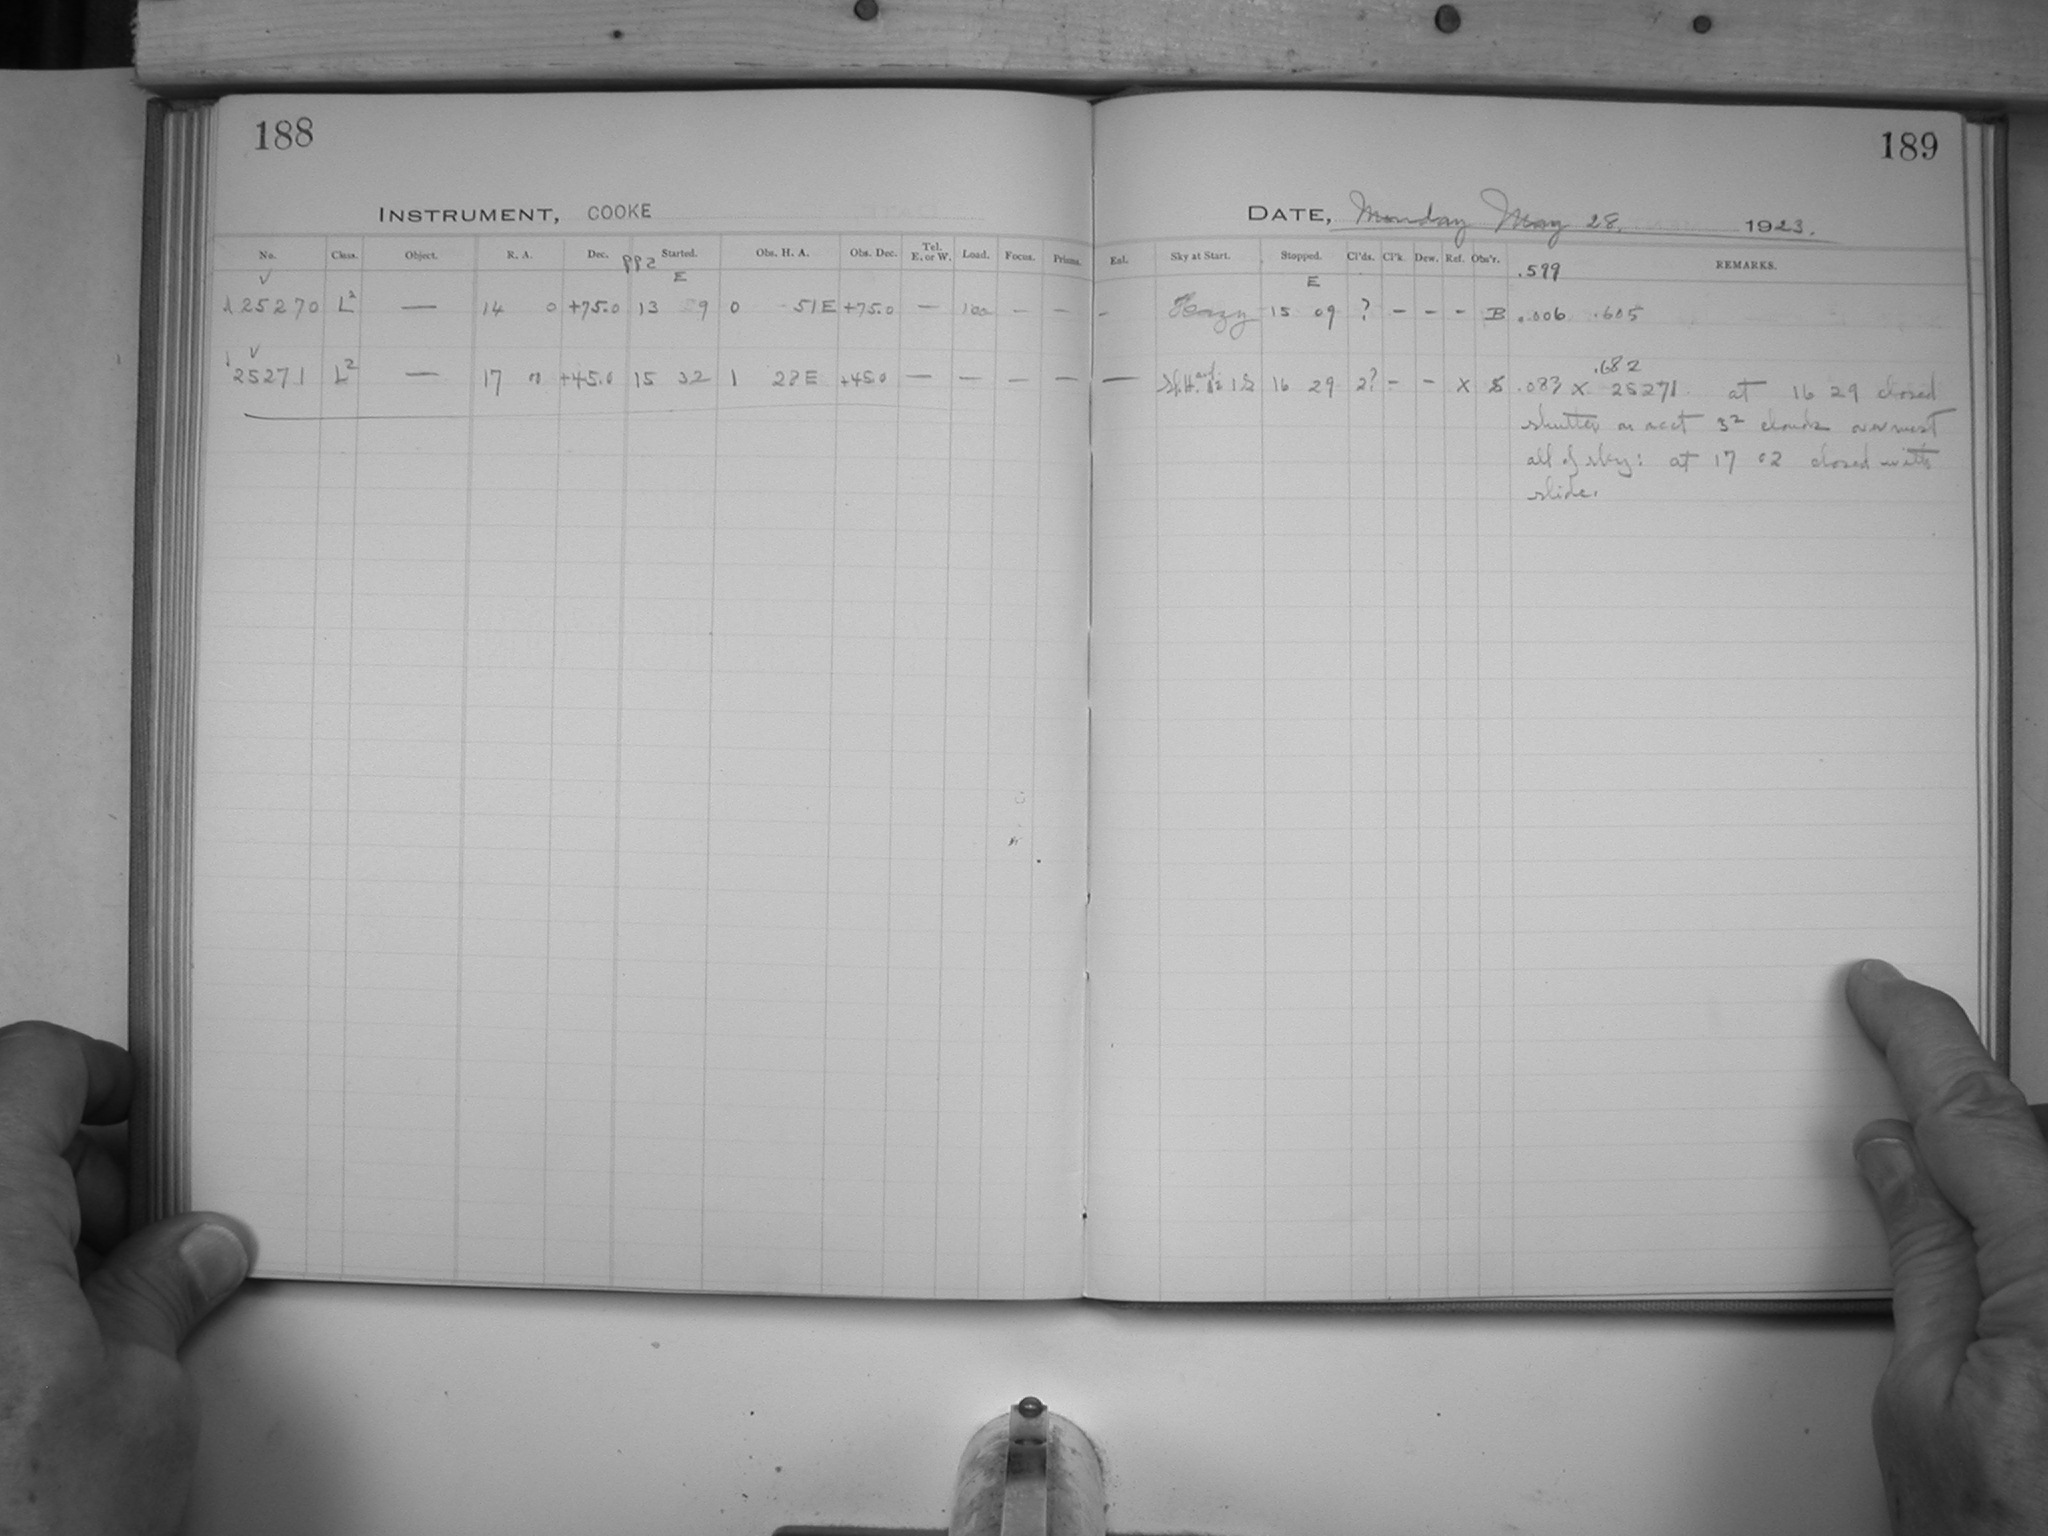 188
189
INSTRUMENT, COOKE
DATE, Monday May 28, 1923.
No. Class. Object. R. A. Dec. Started. Obs. H. A. Obs. Dec. Tel. E. or W. Load. Focus. Prisms. Esl. Sky at Start. Stopped. Cl'ds. Cl'k. Dew. Ref. Obs'r. REMARKS.
E E .599
25270 L² — 14 0 +75.0 13 59 0 51 E +75.0 — 100 — — - Hazy 15 09 ? - - - B .006 .605
.682
25271 L² — 17 0 +45.0 15 32 1 28 E +45.0 — — — — — 16 29 2? - - X S .083 X 25271 at 16 29 closed
shutter on acct 3² clouds over most
all of sky: at 17 02 closed with
slide.